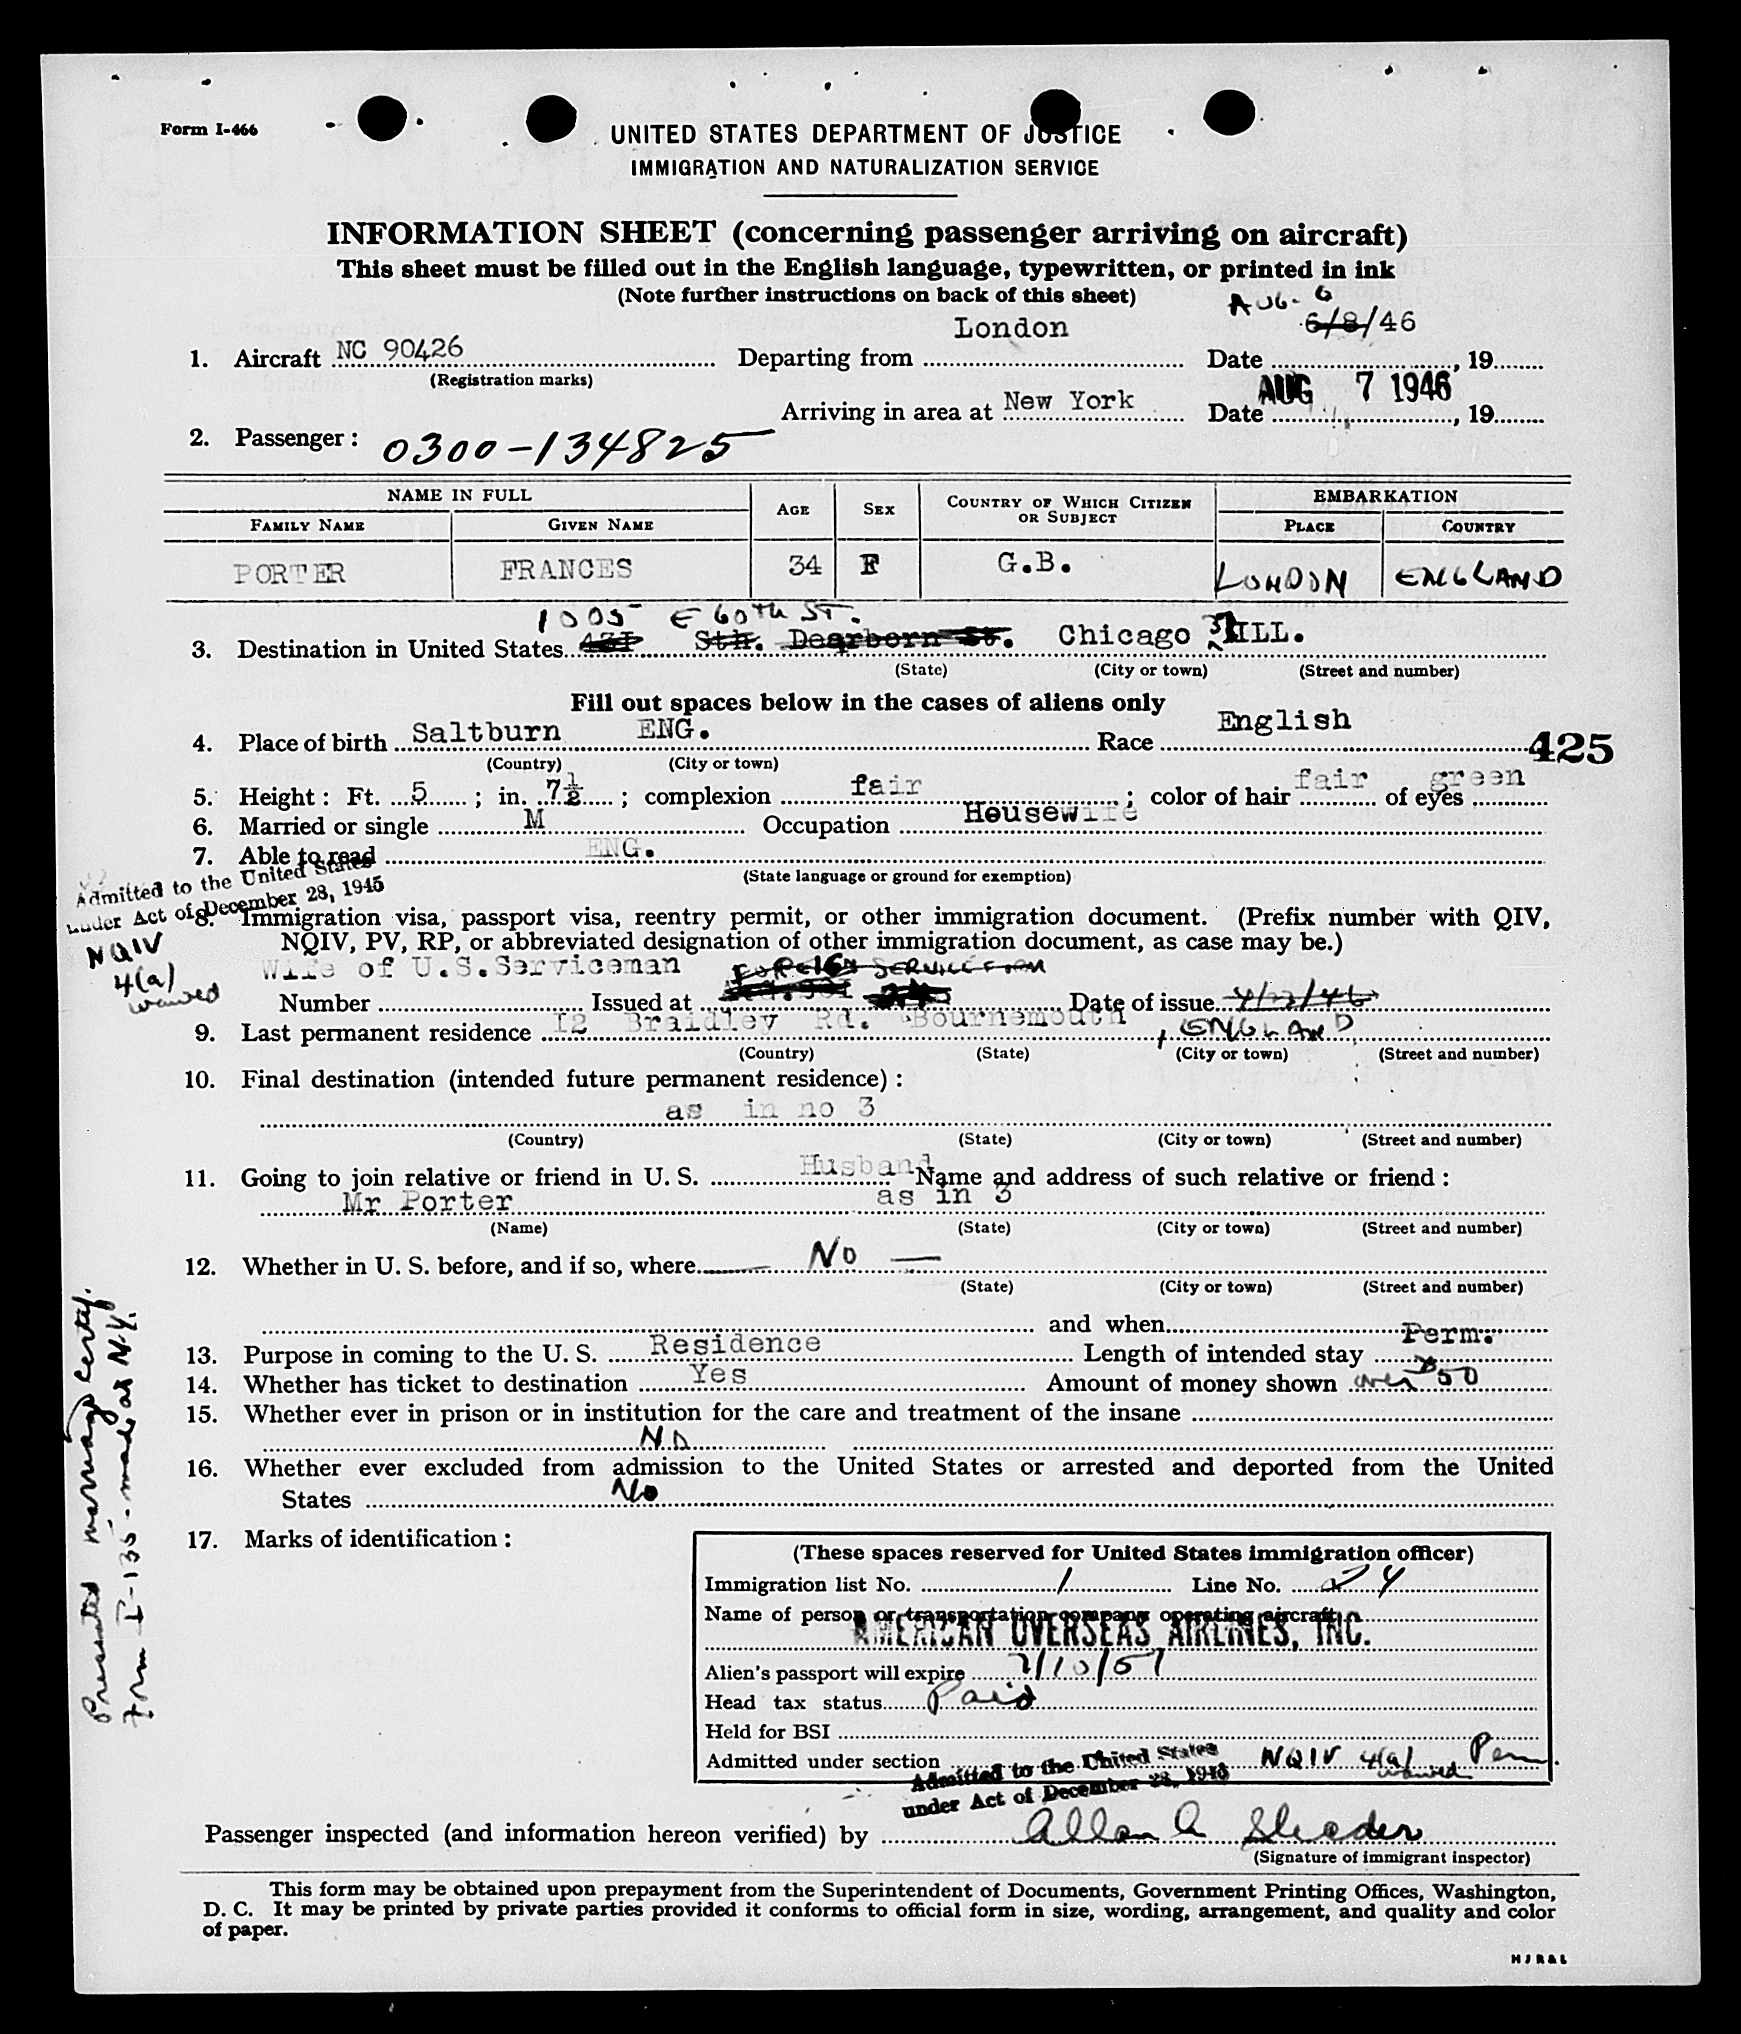 Form I-466
UNITED STATES DEPARTMENT OF JUSTICE
IMMIGRATION AND NATURALIZATION SERVICE
INFORMATION SHEET (concerning passenger arriving on aircraft)
This sheet must be filled out in the English language, typewritten, or printed in ink
(Note further instructions on back of this sheet)
AUG. 6
1. Aircraft NC 90426 Departing from London Date 6/8/46, 19
(Registration marks)
Arriving in area at New York Date AUG 7 1946, 19
2. Passenger: 0300-134825
NAME IN FULL AGE SEX COUNTRY OF WHICH CITIZEN OR SUBJECT EMBARKATION
FAMILY NAME GIVEN NAME PLACE COUNTRY
PORTER FRANCES 34 F G.B. LONDON ENGLAND
1005 E 60th ST.
3. Destination in United States 431 Sth. Dearborn St. Chicago ILL.
(State) (City or town) (Street and number)
Fill out spaces below in the cases of aliens only
4. Place of birth Saltburn ENG. Race English
425
(Country) (City or town)
5. Height: Ft. 5; in. 7½; complexion fair; color of hair fair of eyes green
6. Married or single M Occupation Housewife
7. Able to read ENG.
(State language or ground for exemption)
Admitted to the United States
under Act of December 28, 1945
NQIV
4(a)
waived
8. Immigration visa, passport visa, reentry permit, or other immigration document. (Prefix number with QIV,
NQIV, PV, RP, or abbreviated designation of other immigration document, as case may be.)
Wife of U.S.Serviceman FOREIGN SERVICE FORM
Number Issued at Date of issue
9. Last permanent residence 12 Braidley Rd. Bournemouth, ENGLAND
(Country) (State) (City or town) (Street and number)
10. Final destination (intended future permanent residence):
as in no 3
(Country) (State) (City or town) (Street and number)
11. Going to join relative or friend in U. S. Husband Name and address of such relative or friend:
Mr Porter as in 3
(Name) (State) (City or town) (Street and number)
12. Whether in U. S. before, and if so, where No
(State) (City or town) (Street and number)
and when
13. Purpose in coming to the U. S. Residence Length of intended stay Perm.
14. Whether has ticket to destination Yes Amount of money shown over $50
15. Whether ever in prison or in institution for the care and treatment of the insane
No
16. Whether ever excluded from admission to the United States or arrested and deported from the United
States No
17. Marks of identification:
Presented marriage certif.
Form I-135 - made at N.Y.
(These spaces reserved for United States immigration officer)
Immigration list No. 1 Line No. 4
Name of person or transportation company operating aircraft
AMERICAN OVERSEAS AIRLINES, INC.
Alien's passport will expire 7/10/51
Head tax status Paid
Held for BSI
Admitted under section NQIV 4(a) waived Perm.
Admitted to the United States
under Act of December 28, 1945
Passenger inspected (and information hereon verified) by Allan A
(Signature of immigrant inspector)
This form may be obtained upon prepayment from the Superintendent of Documents, Government Printing Offices, Washington,
D. C. It may be printed by private parties provided it conforms to official form in size, wording, arrangement, and quality and color
of paper.
HJR&L